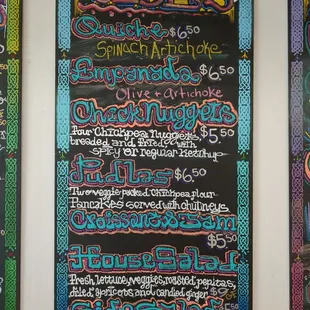 Quiche $6.50
Spinach Artichoke
Empanada $6.50
Olive + Artichoke
Chick Nuggets
Four Chickpea Nuggets, $5.50
breaded and fried, with
spicy or regular Ketchup
Pudlas $6.50
Two veggie packed chickpea flour
Pancakes served with chutneys
Croissant & Jam
$5.50
House Salad
Fresh lettuce, veggies, roasted pepitas,
dried apricots and candied ginger $